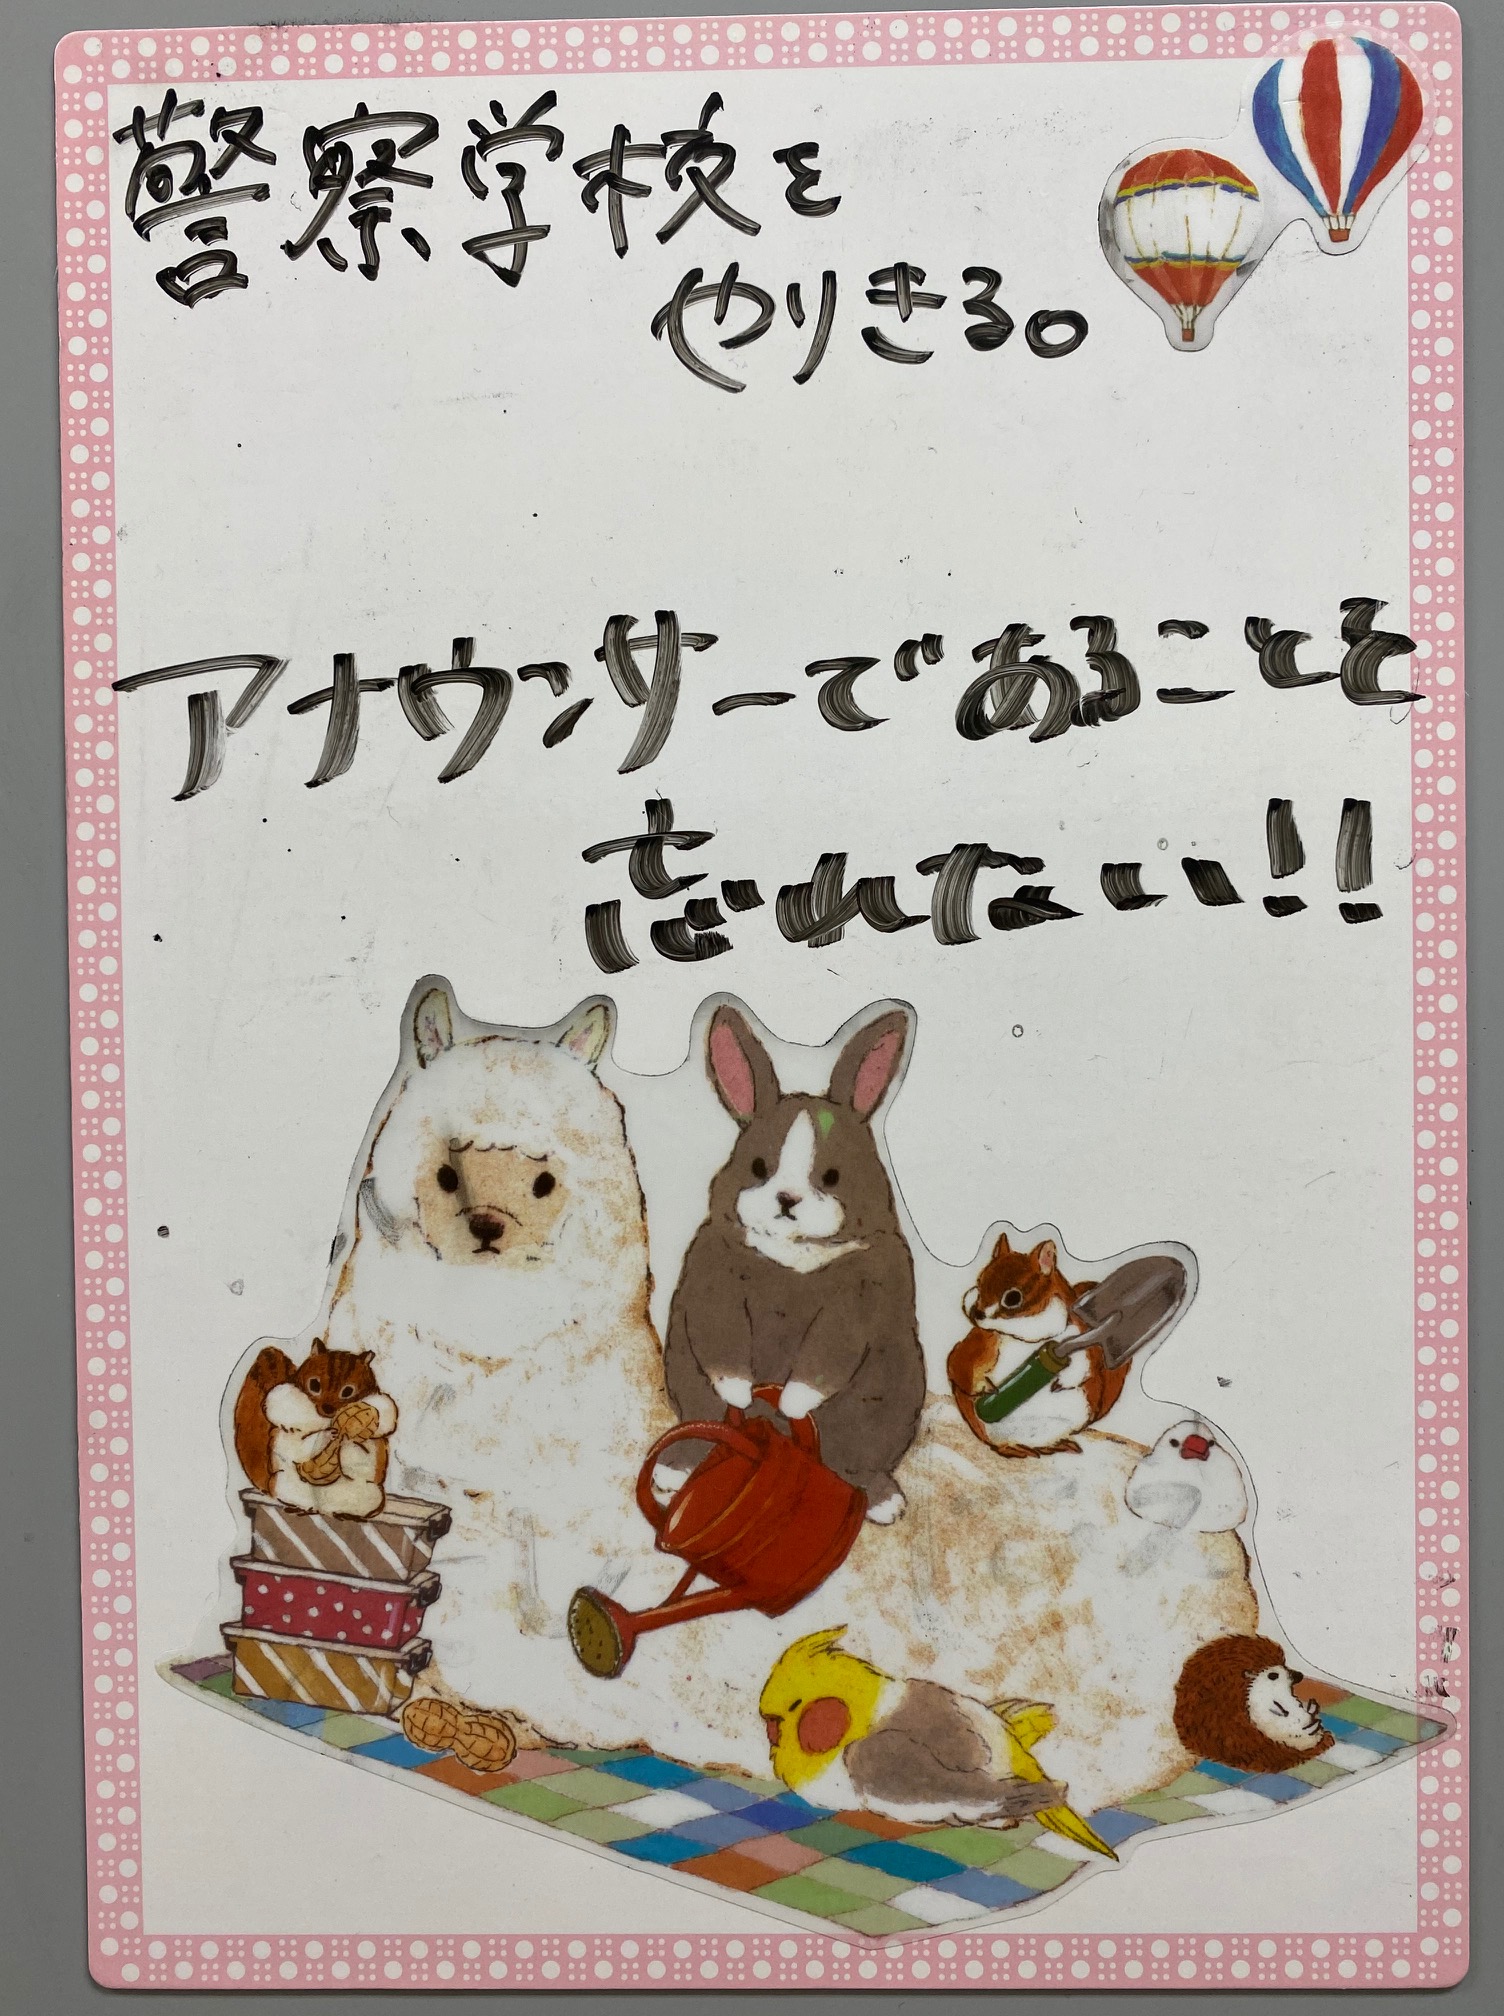 警察学校を
やりきる。
アナウンサーであることを
忘れたい!!